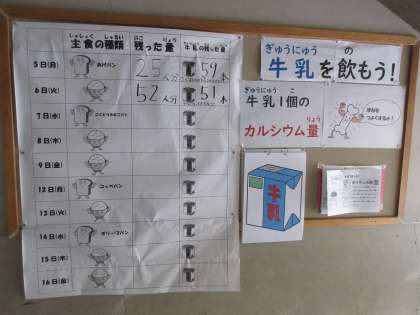 しゅしょく しゅるい のこ りょう ぎゅうにゅう のこ りょう
主食の種類 残った量 牛乳の残った量
5日(月) 25人分 59本
6日(火) 52人分 51本
7日(水)
8日(木)
9日(金)
12日(月) コッペパン
13日(火)
14日(水)
15日(木)
16日(金)
ぎゅうにゅう の
牛乳を飲もう!
ぎゅうにゅう こ
牛乳1個の
りょう
カルシウム量
ほねを
つよくするよ!
牛乳